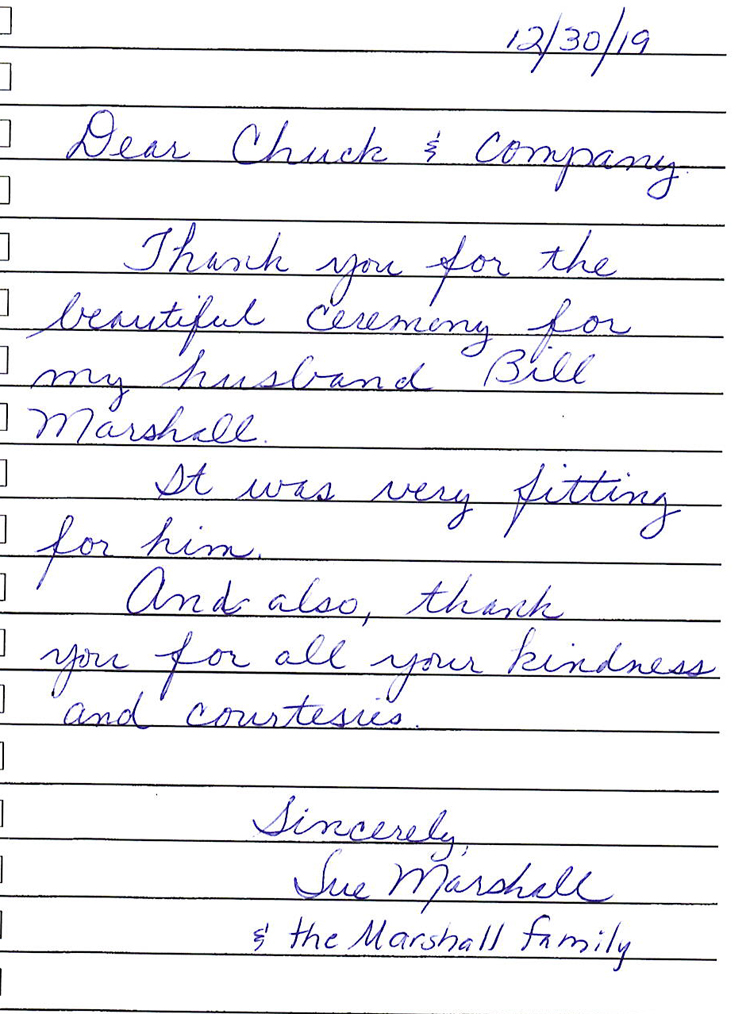 12/30/19
Dear Chuck & Company.
Thank you for the
beautiful ceremony for
my husband Bill
Marshall.
It was very fitting
for him.
And also, thank
you for all your kindness
and courtesies.
Sincerely,
Sue Marshall
& the Marshall family